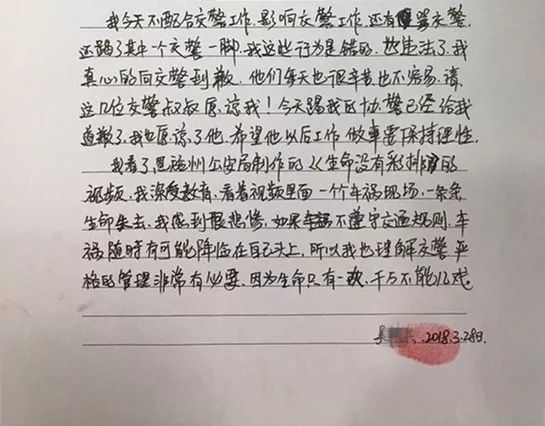 我今天不配合交警工作,影响交警工作,还有骂交警,
还踢了其中一个交警一脚,我这些行为是错的,违法了,我
真心的向交警到歉,他们每天也很辛苦也不容易,请
这几位交警叔叔原谅我!今天踢我区协警已经给我
道歉了,我也原谅了他,希望他以后工作做事要保持理性。
我看了恩施州公安局制作的《生命没有彩排》的
视频,我深度教育,看着视频里面一个车祸现场,一条条
生命失去,我感到很悲惨,如果不遵守交通规则,车
祸随时有可能降临在自己头上,所以我也理解交警严
格的管理非常有必要,因为生命只有一次,千万不能儿戏。
2018.3.28日